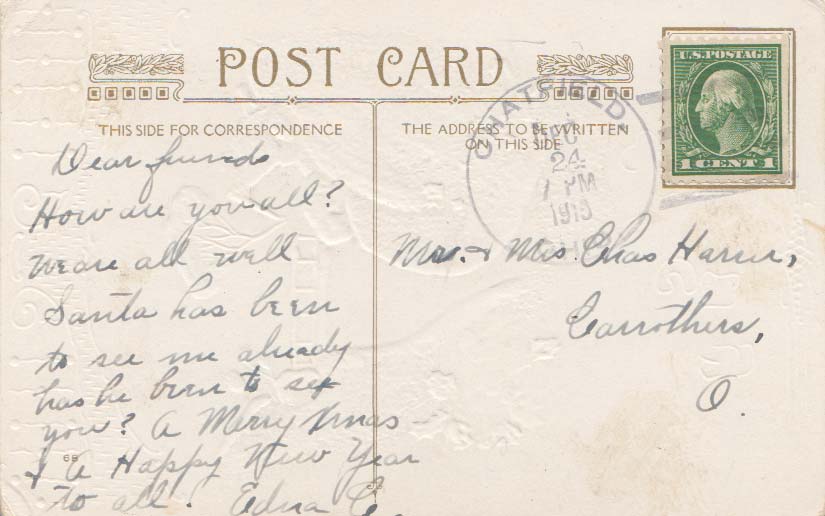 POST CARD
THIS SIDE FOR CORRESPONDENCE
THE ADDRESS TO BE WRITTEN
ON THIS SIDE
U.S. POSTAGE
1 CENT 1
CHATFIELD,
DEC
24
1 PM
1913
OHIO
Dear friends
How are you all?
We are all well
Santa has been
to see me already
has he been to see
you? A Merry Xmas
& A Happy New Year
to all. Edna C.
Mr. & Mrs. Chas Harrer,
Carrothers,
O.